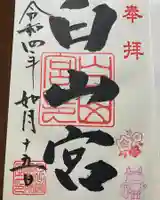 奉拝
白山宮
令和四年 如月十五日